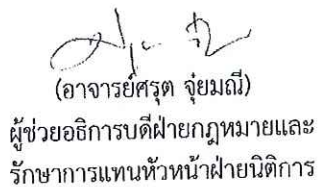 (อาจารย์ศรุต จุ๋ยมณี)
ผู้ช่วยอธิการบดีฝ่ายกฎหมายและ
รักษาการแทนหัวหน้าฝ่ายนิติการ